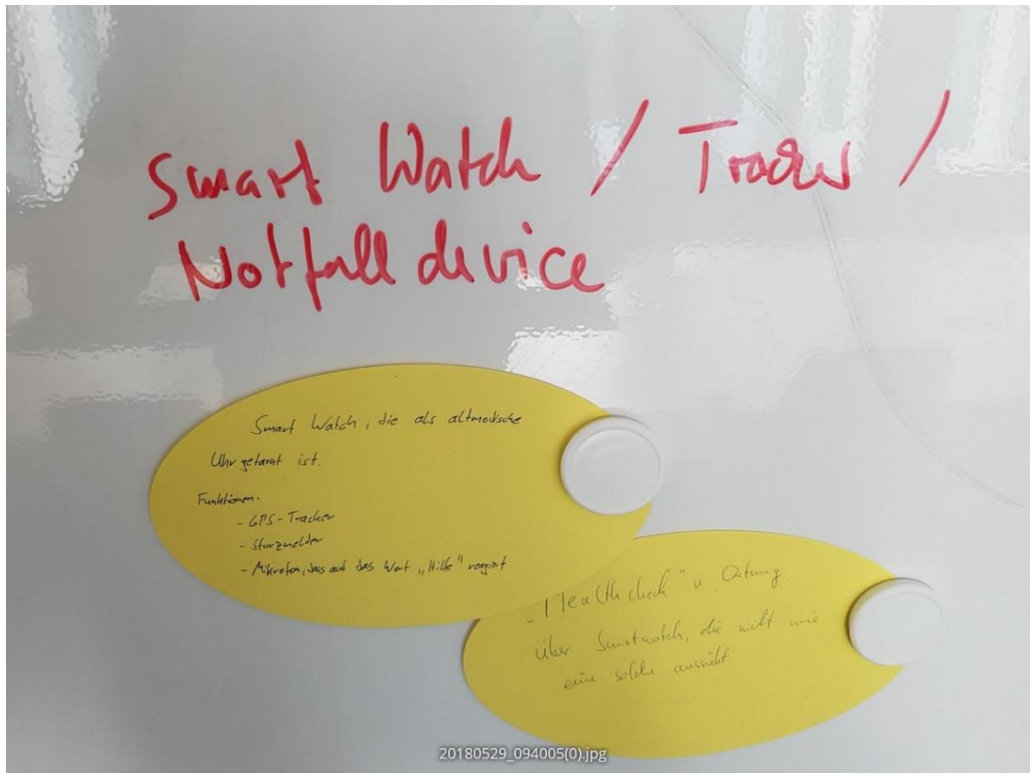 Smart Watch / Tracker /
Notfall device
Smart Watch, die als altmodische
Uhr getarnt ist.
Funktionen.
- GPS-Tracker
- Sturzmelder
- Mikrofon, das auf das Wort „Hilfe" reagiert
„Health check" u. Ortung
über Smartwatch, die nicht wie
eine solche aussieht
20180529_094005(0).jpg